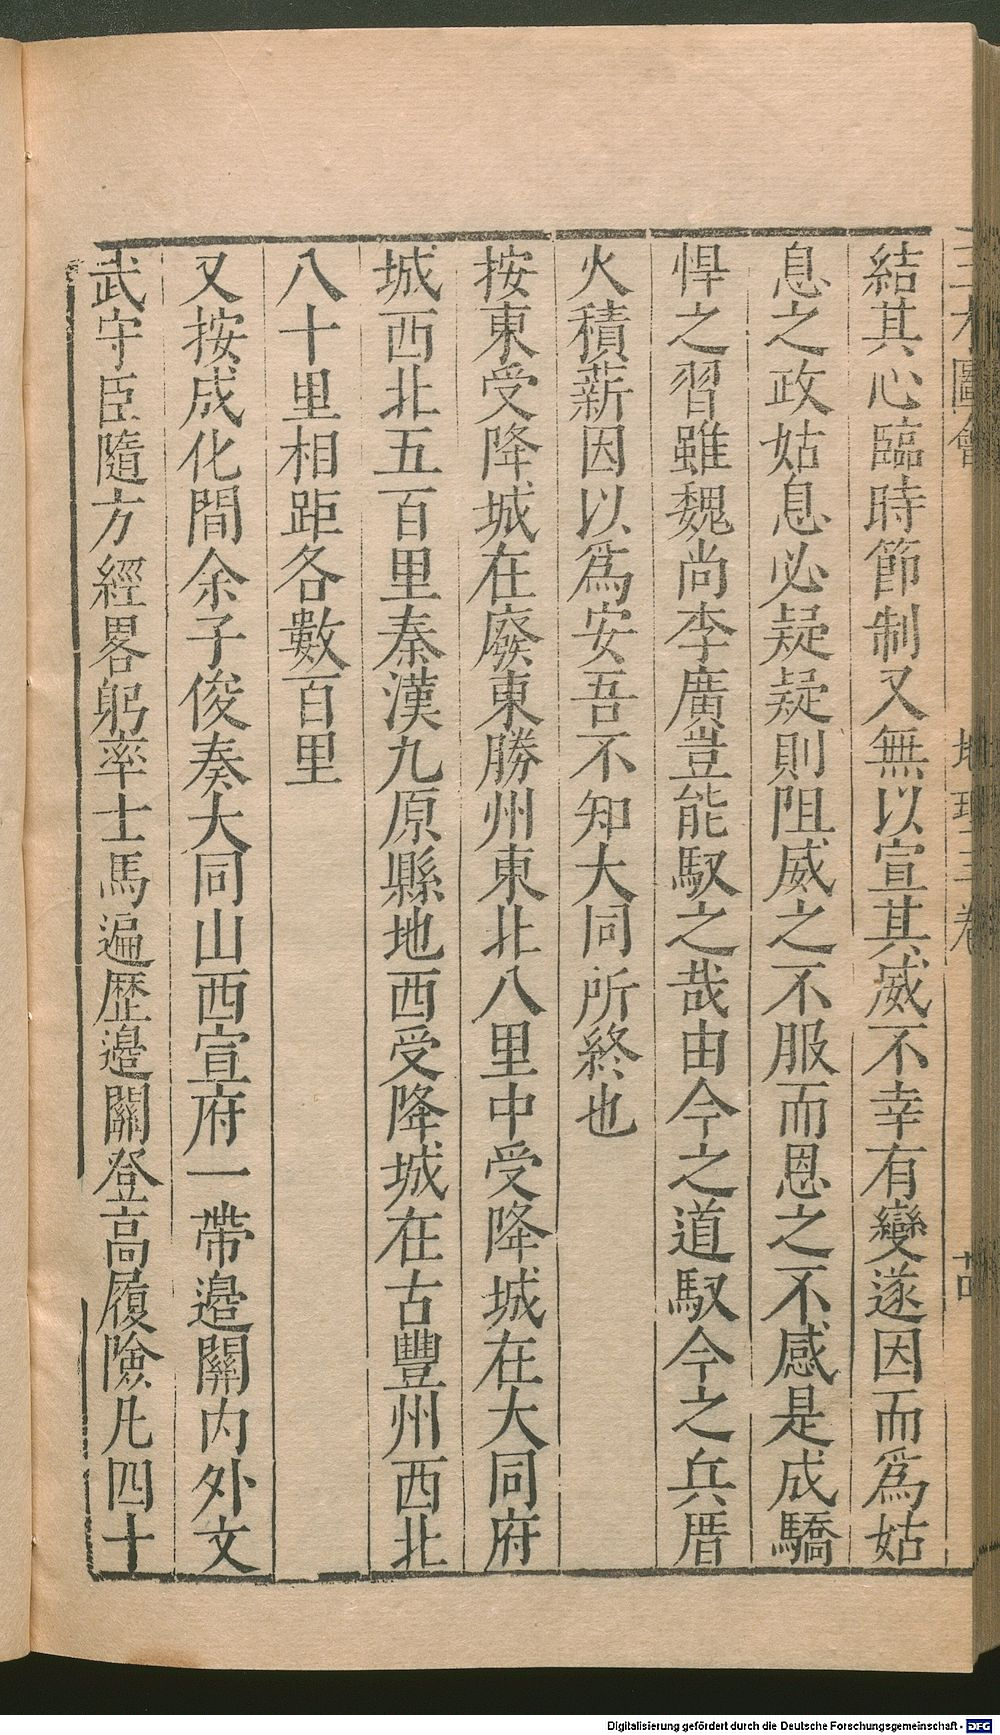 三才圖會
地理三卷
結其心臨時節制又無以宣其威不幸有變遂因而爲姑
息之政姑息必疑疑則阻威之不服而恩之不感是成驕
悍之習雖魏尚李廣豈能馭之哉由今之道馭今之兵厝
火積薪因以爲安吾不知大同所終也
按東受降城在廢東勝州東北八里中受降城在大同府
城西北五百里秦漢九原縣地西受降城在古豐州西北
八十里相距各數百里
又按成化間余子俊奏大同山西宣府一帶邉關内外文
武守臣隨方經畧躬率士馬遍歷邉關登高履險凡四十
Digitalisierung gefördert durch die Deutsche Forschungsgemeinschaft - DFG